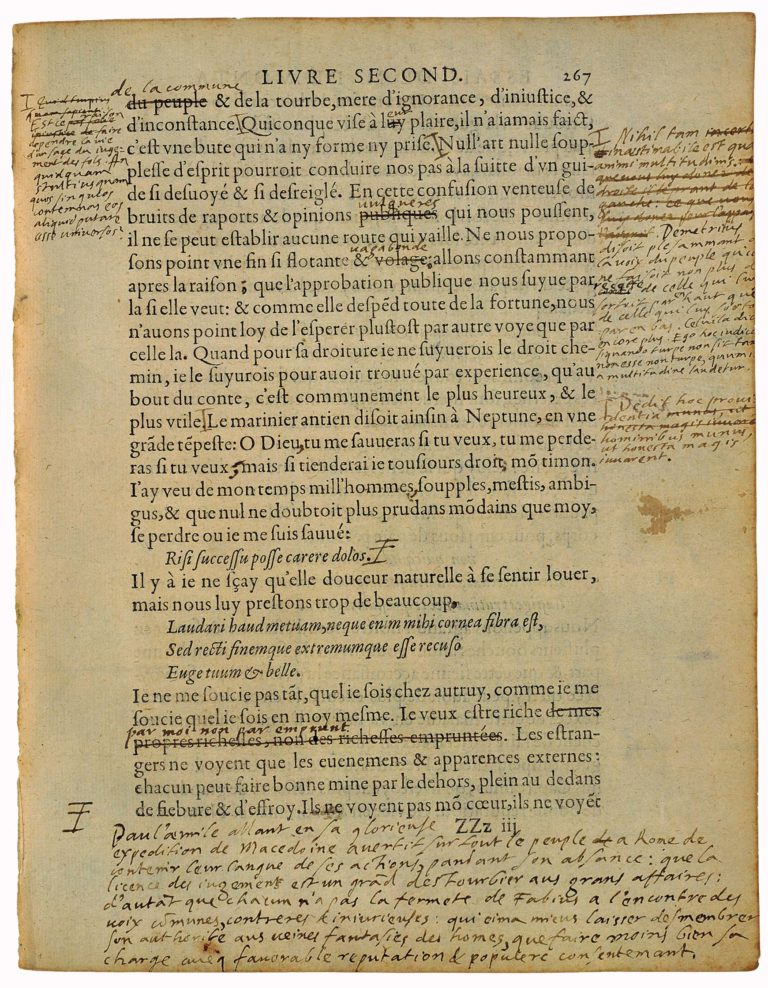 LIVRE SECOND. 267
de la commune
du peuple & de la tourbe, mere d'ignorance, d'iniustice, &
d'inconstance. Quiconque vise à luy plaire, il n'a iamais faict,
eur
c'est vne bute qui n'a ny forme ny prise. Null'art nulle soup-
plesse d'esprit pourroit conduire nos pas à la suitte d'vn gui-
de si desuoyé & si desreiglé. En cette confusion venteuse de
vulgueres
bruits de raports & opinions publiques qui nous poussent,
il ne se peut establir aucune route qui vaille. Ne nous propo-
vagabonde
sons point vne fin si flotante & volage: allons constammant
apres la raison; que l'approbation publique nous suyue par
la si elle veut: & comme elle despẽd toute de la fortune, nous
n'auons point loy de l'esperer plustost par autre voye que par
celle la. Quand pour sa droiture ie ne suyuerois le droit che-
min, ie le suyurois pour auoir trouué par experience, qu'au
bout du conte, c'est communement le plus heureux, & le
plus vtile. Le marinier antien disoit ainsin à Neptune, en vne
grãde tẽpeste: O Dieu, tu me sauueras si tu veux, tu me perde-
ras si tu veux, mais si tienderai ie tousiours droit, mõ timon.
I'ay veu de mon temps mill'hommes, soupples, mestis, ambi-
gus, & que nul ne doubtoit plus prudans mõdains que moy,
se perdre ou ie me suis sauué:
Risi successu posse carere dolos.
Il y à ie ne sçay qu'elle douceur naturelle à se sentir louer,
mais nous luy prestons trop de beaucoup.
Laudari haud metuam, neque enim mihi cornea fibra est,
Sed recti finemque extremumque esse recuso
Euge tuum & belle.
Ie ne me soucie pas tãt, quel ie sois chez autruy, comme ie me
soucie quel ie sois en moy mesme. Ie veux estre riche de mes
par moi non par emprunt
propres richesses, non des richesses empruntées. Les estran-
gers ne voyent que les euenemens & apparences externes:
chacun peut faire bonne mine par le dehors, plein au dedans
de fiebure & d'effroy. Ils ne voyent pas mõ cœur, ils ne voyẽt
ZZz iij
faire
dependre la vie
d'un sage du iuge-
ment des fols. An
quidquam
stultius quam
quos singulos
contemnas eos
aliquid putare
esse universos?
Nihil tam
inaestimabile est quam
animi multitudinis.
Demetrius
disoit plesammant de
la voix du peuple qu'il
ne faisoit non plus
de celle qui luy
sortoit par haut que
de celle qui luy sortoit
par en bas. Celui la dict
encore plus. Ego hoc iudico
si quando turpe non sit tamen
non esse non turpe, quum id
a multitudine laudetur.
Dedit hoc provi
dentia
hominibus munus,
ut honesta magis
iuvarent.
Paul'aemile allant en sa glorieuse
expedition de Macedoine avertit sur tout le peuple a Rome de
contenir leur langue de ses actions, pandant son absance: que la
licence des iugemens est un grãd destourbier aus grans affaires:
d'autãt que chacun n'a pas la fermete de Fabius a l'encontre des
voix cõmunes, contreres & iniurieuses: qui eima mieus laisser desmembrer
son authorite aus veines fantasies des homes, que faire moins bien sa
charge aveq favorable reputation & populere consentemant.